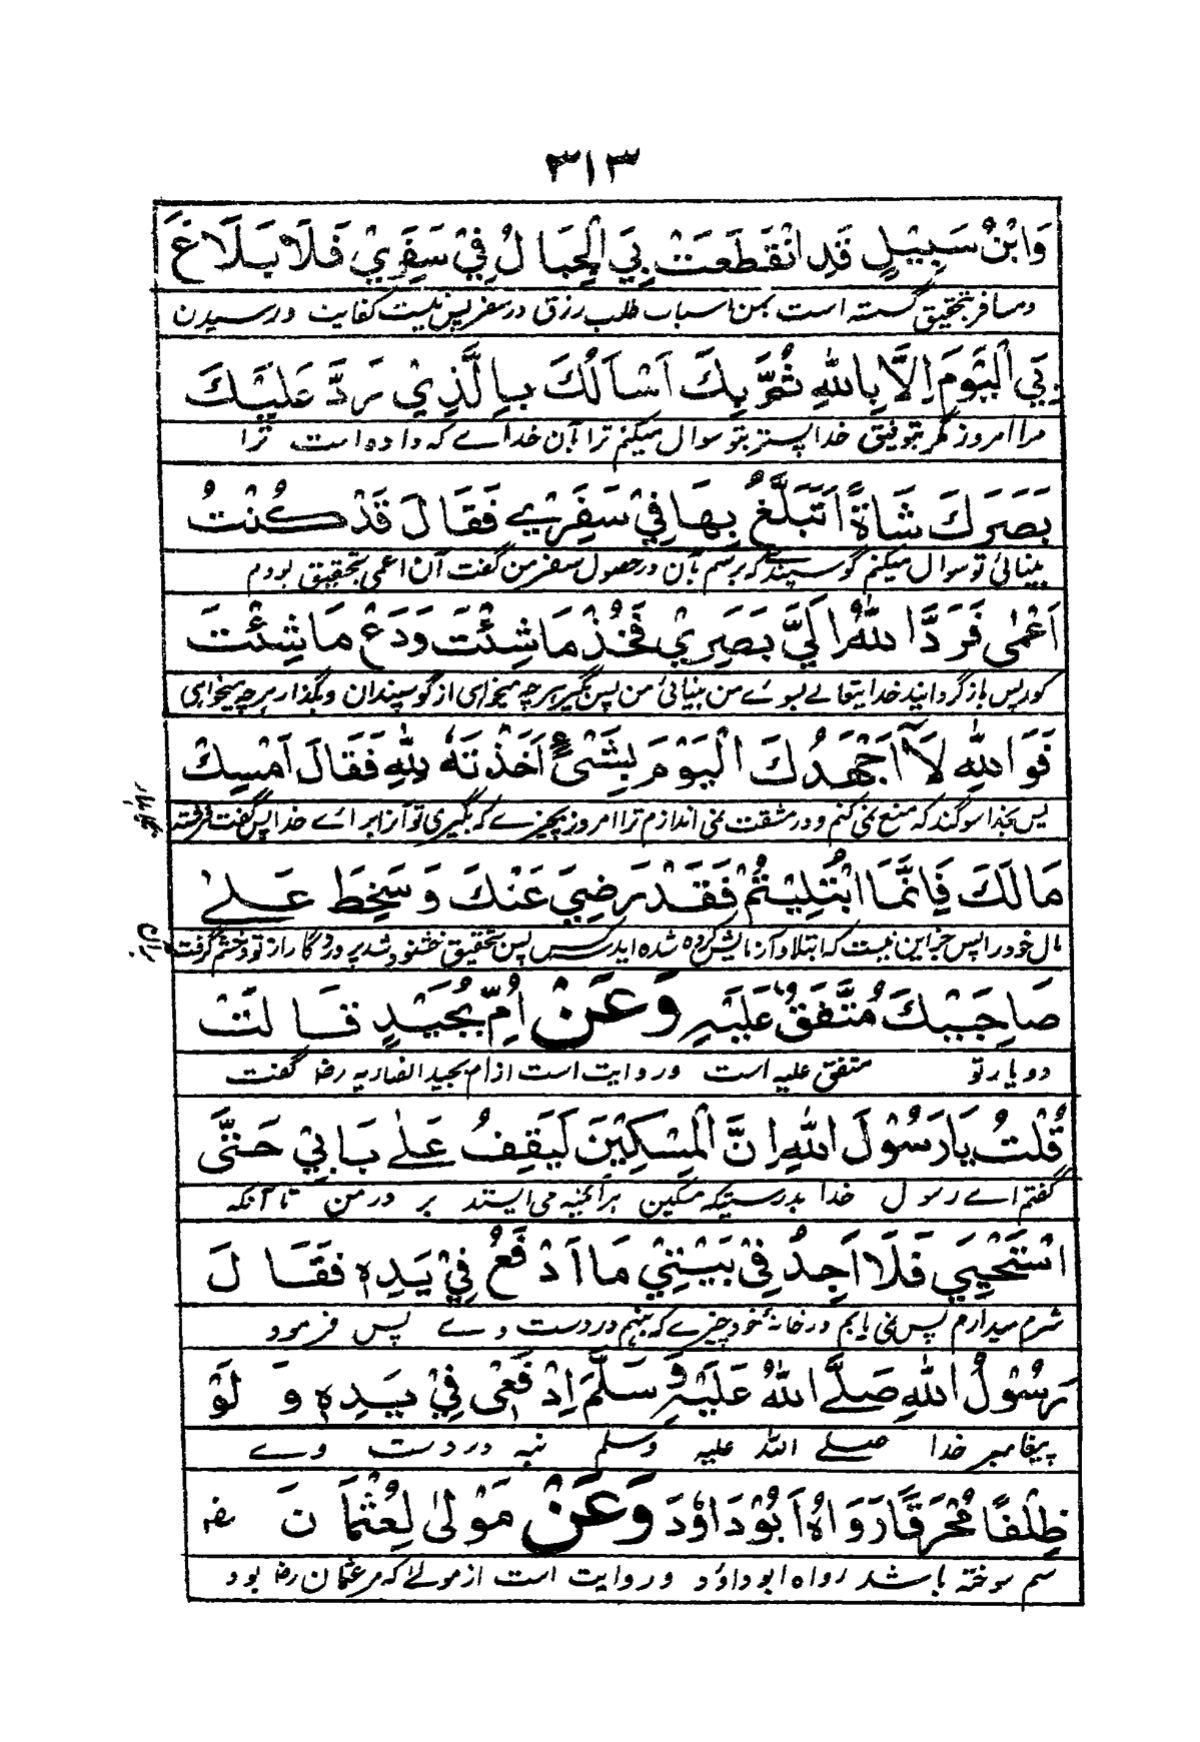 ٣١٣
وَابْنُ سَبِيْلٍ قَدِ انْقَطَعَتْ بِيَ الْحِبَالُ فِيْ سَفَرِيْ فَلَا بَلَاغَ
ومسافر بتحقیق گسسته است بمن اسباب طلب رزق در سفر پس نیست کفایت ورسیدن
بِيَ الْيَوْمَ اِلَّا بِاللهِ ثُمَّ بِكَ اَسْاَلُكَ بِالَّذِيْ رَدَّ عَلَيْكَ
مرا امروز مگر بتوفیق خدا پستر بتو سوال میکنم ترا بآن خداے که داده است ترا
بَصَرَكَ شَاةً اَتَبَلَّغُ بِهَا فِيْ سَفَرِيْ فَقَالَ قَدْ كُنْتُ
بینائی تو سوال میکنم گوسپندے که برسم بآن در حصول سفر من گفت آن اعمی بتحقیق بودم
اَعْمٰى فَرَدَّ اللهُ اِلَيَّ بَصَرِيْ فَخُذْ مَا شِئْتَ وَدَعْ مَا شِئْتَ
کور پس باز گردانید خدایتعالے بسوے من بینائی من پس بگیر هرچه میخواهی از گوسپندان و بگذار هرچه میخواهی
فَوَ اللهِ لَآ اَجْهَدُكَ الْيَوْمَ بِشَیْءٍ اَخَذْتَهٗ لِلّٰهِ فَقَالَ اَمْسِكْ
پس بخدا سوگند که منع نمی کنم و در مشقت نمی اندازم ترا امروز بچیزے که بگیری تو آنرا براے خدا پس گفت فرشته
مَالَكَ فَاِنَّمَا ابْتُلِيْتُمْ فَقَدْ رَضِيَ عَنْكَ وَسَخِطَ عَلٰى
مال خود را پس جز این نیست که ابتلا و آزمایش کرده شده اید پس بتحقیق خشنود شد پروردگار از تو و خشم گرفت
صَاحِبَيْكَ مُتَّفَقٌ عَلَيْهِ وَعَنْ اُمِّ بُجَيْدٍ قَالَتْ
دو یار تو متفق علیه است و روایت است از ام بجید انصاریه رضا گفت
قُلْتُ يَا رَسُوْلَ اللهِ اِنَّ الْمِسْكِيْنَ لَيَقِفُ عَلٰى بَابِيْ حَتّٰى
گفتم اے رسول خدا بدرستیکه مسکین هر آئینه می ایستد بر در من تا آنکه
اسْتَحْيِيَ فَلَا اَجِدُ فِيْ بَيْتِيْ مَا اَدْفَعُ فِيْ يَدِهٖ فَقَالَ
شرم میدارم پس نمی یابم در خانهٔ خود چیزے که بنهم در دست وے پس فرمود
رَسُوْلُ اللهِ صَلَّى اللهُ عَلَيْهِ وَسَلَّمَ اِدْفَعِيْ فِيْ يَدِهٖ وَلَوْ
پیغامبر خدا صلے الله علیه وسلم بنه در دست وے
ظِلْفًا مُحْرَقًا رَوَاهُ اَبُوْدَاوٗدَ وَعَنْ مَوْلٰى لِعُثْمَانَ رضه
سم سوخته باشد رواه ابوداؤد و روایت است از مولاے که مر عثمان رضا بود